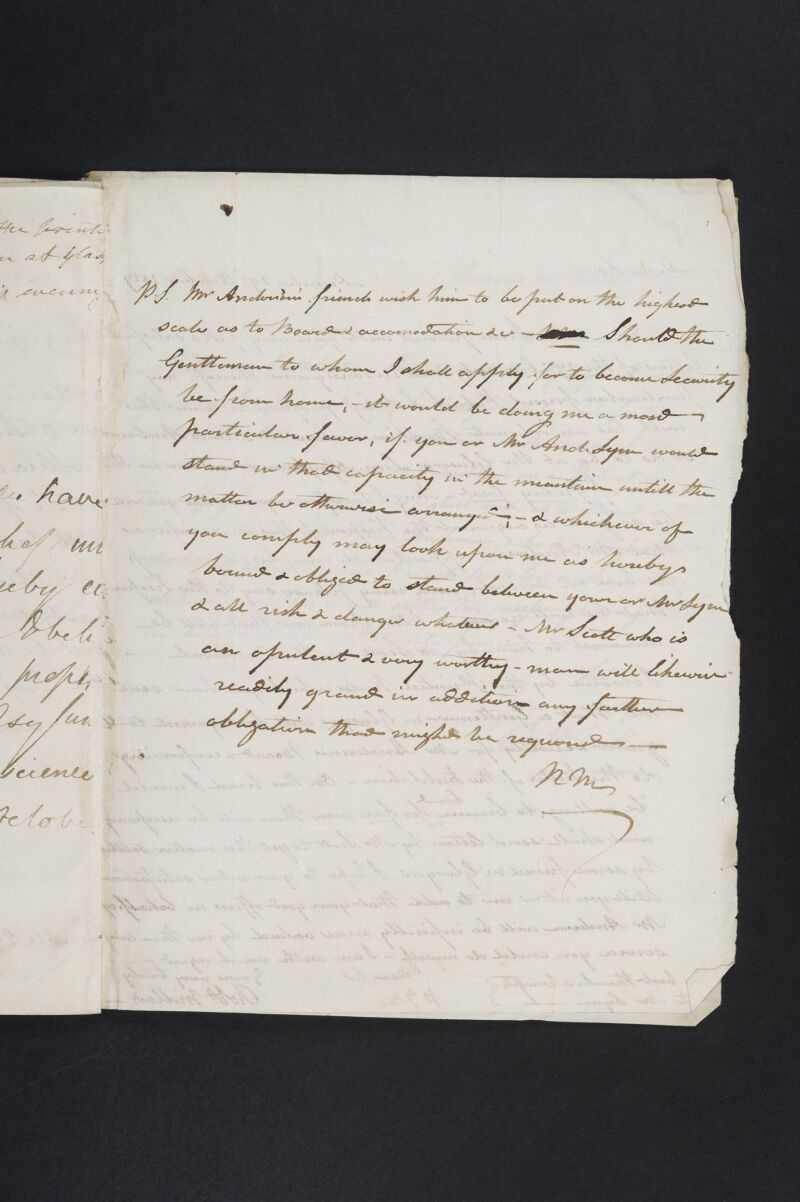 the
at Glas
evening
P.S. Mr Andersons friends wish him to be put on the highest
scale as to Board & accomodation &c – Should the
Gentleman to whom I shall apply for to become Security
be from home, – it would be doing me a most
particular favor, if you or Mr And. Sym would
stand in that capacity in the meantime untill the
matter be otherwise arranged; – & whichever of
you comply may look upon me as hereby
bound & obliged to stand between your or Mr Sym
& all risk & danger whatever – Mr Scott who is
an opulent & very worthy – man will likewise
readily grant in addition any farther
obligation that might be required –
RM
have
eby
prope
science
ctobe